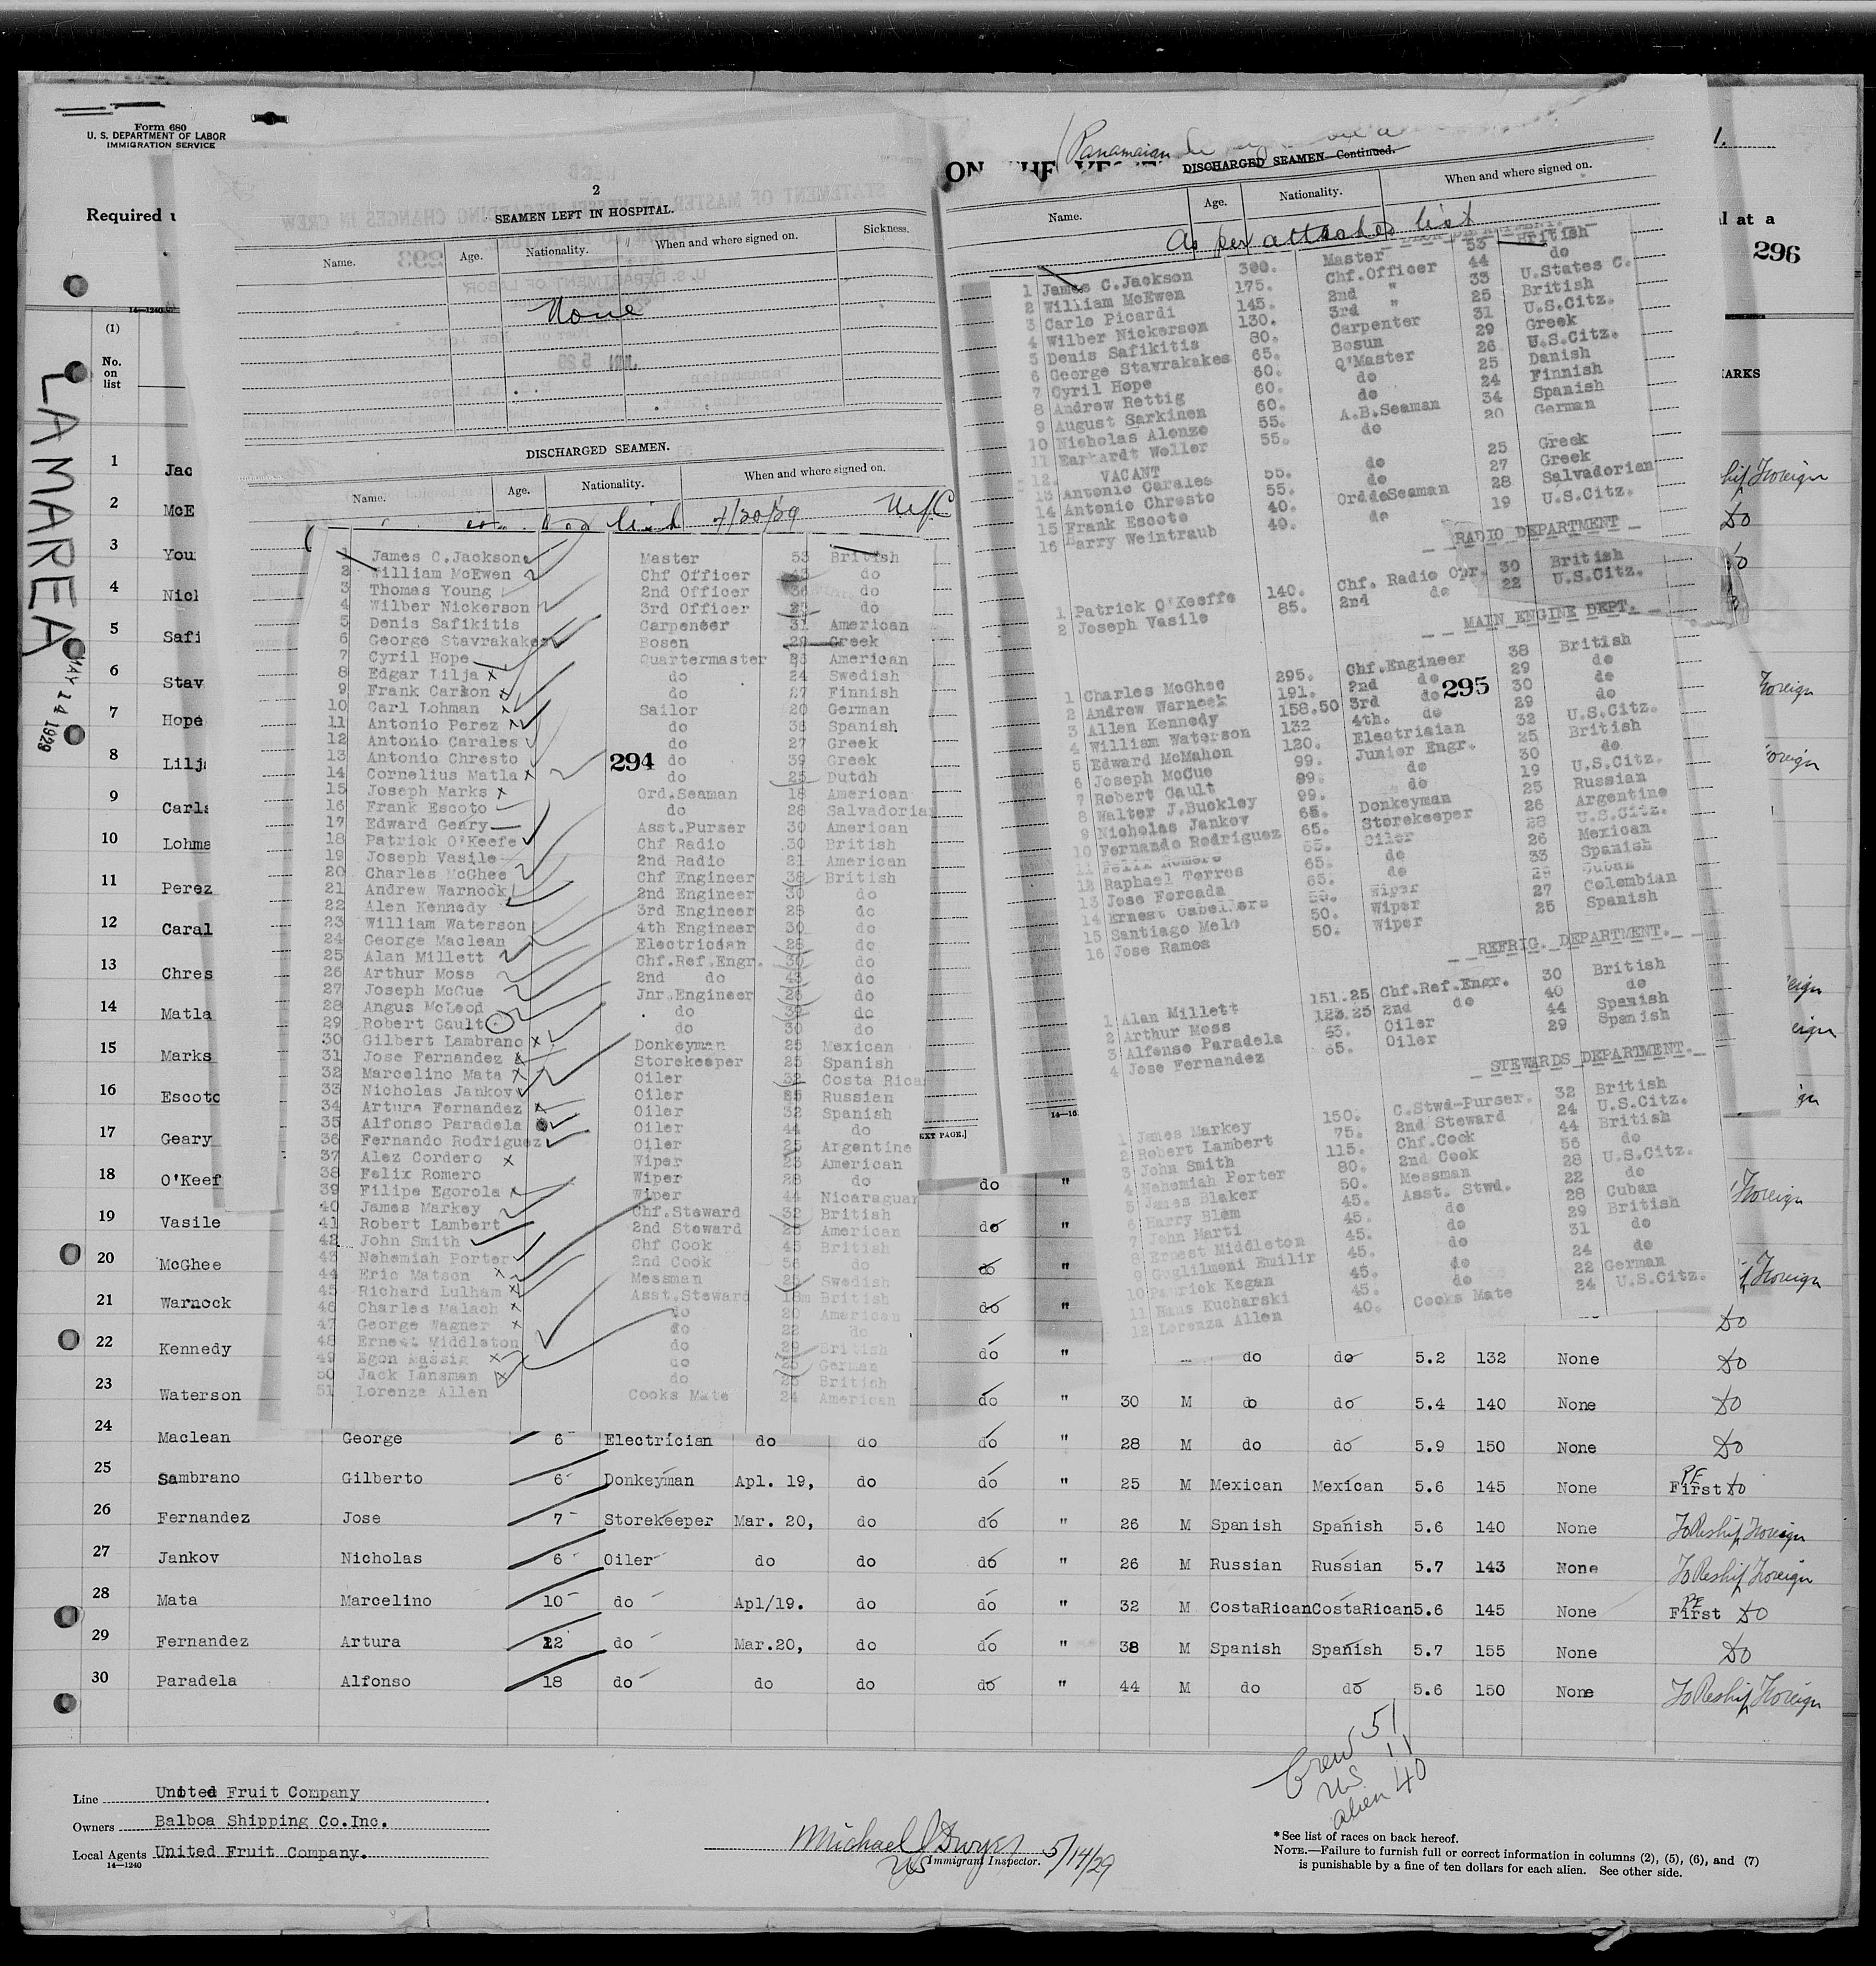 Form 680
U. S. DEPARTMENT OF LABOR
IMMIGRATION SERVICE
Required
(1)
No.
on
list
LAMAREA
MAY 14 1929
1 Jac
2 McE
3 You
4 Nicl
5 Safi
6 Stav
7 Hope
8 Lilj
9 Carls
10 Lohma
11 Perez
12 Caral
13 Chres
14 Matla
15 Marks
16 Escoto
17 Geary
18 O'Keef
19 Vasile
20 McGhee
21 Warnock
22 Kennedy
23 Waterson
2
SEAMEN LEFT IN HOSPITAL.
Name. Age. Nationality. When and where signed on. Sickness.
None
DISCHARGED SEAMEN.
Name. Age. Nationality. When and where signed on.
list 4/30/29
1 James C.Jackson Master 53 British
2 William McEwen Chf Officer do
3 Thomas Young 2nd Officer 36 do
4 Wilber Nickerson 3rd Officer 25 do
5 Denis Safikitis Carpenter 31 American
6 George Stavrakakes Bosen 29 Greek
7 Cyril Hope Quartermaster American
8 Edgar Lilja x do 24 Swedish
9 Frank Carlson x do 27 Finnish
10 Carl Lohman x Sailor 20 German
11 Antonio Perez x do 36 Spanish
12 Antonio Carales do 27 Greek
13 Antonio Chresto do 39 Greek
294
14 Cornelius Matla x do 25 Dutch
15 Joseph Marks x Ord.Seaman 18 American
16 Frank Escoto do 28 Salvadoria
17 Edward Geary Asst.Purser 30 American
18 Patrick O'Keefe Chf Radio 30 British
19 Joseph Vasile 2nd Radio 21 American
20 Charles McGhee Chf Engineer 38 British
21 Andrew Warnock 2nd Engineer 30 do
22 Alen Kennedy 3rd Engineer 28 do
23 William Waterson 4th Engineer 30 do
24 George Maclean Electrician 28 do
25 Alan Millett Chf.Ref.Engr. 30 do
26 Arthur Moss 2nd do 43 do
27 Joseph McCue Jnr.Engineer 26 do
28 Angus McLeod do do
29 Robert Gault do 30 do
30 Gilbert Lambrano x Donkeyman 25 Mexican
31 Jose Fernandez Storekeeper 25 Spanish
32 Marcelino Mata x Oiler 32 Costa Rica
33 Nicholas Jankov Oiler Russian
34 Artura Fernandez x Oiler 32 Spanish
35 Alfonso Paradela Oiler 44 do
36 Fernando Rodriguez Oiler 25 Argentine
37 Alez Cordero x Wiper 23 American
38 Felix Romero Wiper 28 do
39 Filipe Egorola x Wiper 44 Nicaraguan
40 James Markey Chf.Steward 32 British
41 Robert Lambert 2nd Steward 25 American
42 John Smith Chf Cook 45 British
43 Nehemiah Porter 2nd Cook 56 do
44 Eric Matson x Messman Swedish
45 Richard Lulham x Asst.Steward British
46 Charles Malach x do 20 American
47 George Wagner x do 22 do
48 Ernest Middleton do 29 British
49 Egon Massig x do German
50 Jack Lansman x do British
51 Lorenza Allen Cooks Mate 24 American
Panamaian
ON THE
DISCHARGED SEAMEN—Continued.
Name. Age. Nationality. When and where signed on.
As per attached list
1 James C.Jackson 300. Master 53 British
2 William McEwen 175. Chf.Officer 44 do
3 Carlo Picardi 145. 2nd " 33 U.States C.
4 Wilber Nickerson 130. 3rd " 25 British
5 Denis Safikitis 80. Carpenter 31 U.S.Citz.
6 George Stavrakakes 65. Bosun 29 Greek
7 Cyril Hope 60. Q'Master 26 U.S.Citz.
8 Andrew Rettig 60. do 25 Danish
9 August Sarkinen 60. do 24 Finnish
10 Nicholas Alonzo 55. A.B.Seaman 34 Spanish
11 Earhardt Woller 55. do 20 German
12. VACANT
13 Antonio Carales 55. do 25 Greek
14 Antonio Chresto 55. do 27 Greek
15 Frank Escoto 40. Ord.Seaman 28 Salvadorian
16 Harry Weintraub 40. do 19 U.S.Citz.
RADIO DEPARTMENT
1 Patrick O'Keeffe 140. Chf. Radio Opr. 30 British
2 Joseph Vasile 85. 2nd do 22 U.S.Citz.
MAIN ENGINE DEPT.
1 Charles McGhee 295. Chf.Engineer 38 British
2 Andrew Warnock 191. 2nd do 29 do
3 Allen Kennedy 158.50 3rd do 30 do
295
4 William Waterson 132 4th. do 29 do
5 Edward McMahon 120. Electrician 32 U.S.Citz.
6 Joseph McCue 99. Junior Engr. 25 British
7 Robert Gault 99. do 30 do
8 Walter J.Buckley 99. do 19 U.S.Citz.
9 Nicholas Jankov 65. Donkeyman 25 Russian
10 Fernando Rodriguez 65. Storekeeper 26 Argentine
11 Felix Romero 65. Oiler 28 U.S.Citz.
12 Raphael Torres 65. do 26 Mexican
13 Jose Forcada 65. do 33 Spanish
14 Ernest Caballero Wiper Cuban
15 Santiago Melo 50. Wiper 27 Colombian
16 Jose Ramos 50. Wiper 25 Spanish
REFRIG. DEPARTMENT.
1 Alan Millett 151.25 Chf.Ref.Engr. 30 British
2 Arthur Moss 123.25 2nd do 40 do
3 Alfonso Paradela Oiler 44 Spanish
4 Jose Fernandez 65. Oiler 29 Spanish
STEWARDS DEPARTMENT.
1 James Markey 150. C.Stwd-Purser. 32 British
2 Robert Lambert 75. 2nd Steward 24 U.S.Citz.
3 John Smith 115. Chf.Cook 44 British
4 Nehemiah Porter 80. 2nd Cook 56 do
5 James Blaker 50. Messman 28 U.S.Citz.
6 Harry Blom 45. Asst. Stwd. 22 do
7 John Marti 45. do 28 Cuban
8 Ernest Middleton 45. do 29 British
9 Guglilmoni Emilir 45. do 31 do
10 Patrick Kegan 45. do 24 do
11 Hans Kucharski 45. do 22 German
12 Lorenza Allen 40. Cooks Mate 24 U.S.Citz.
l at a
296
ARKS
hip Foreign
do
Foreign
EXT PAGE.]
do do 5.2 132 None do
30 M do do 5.4 140 None do
24 Maclean George 6 Electrician do do do " 28 M do do 5.9 150 None do
25 Sambrano Gilberto 6 Donkeyman Apl. 19, do do " 25 M Mexican Mexican 5.6 145 None PE First do
26 Fernandez Jose 7 Storekeeper Mar. 20, do do " 26 M Spanish Spanish 5.6 140 None To Reship Foreign
27 Jankov Nicholas 6 Oiler do do do " 26 M Russian Russian 5.7 143 None To Reship Foreign
28 Mata Marcelino 10 do Apl/19. do do " 32 M CostaRican CostaRican 5.6 145 None PE First do
29 Fernandez Artura 12 do Mar.20, do do " 38 M Spanish Spanish 5.7 155 None do
30 Paradela Alfonso 18 do do do do " 44 M do do 5.6 150 None To Reship Foreign
Crew 51
US 11
alien 40
Line United Fruit Company
Owners Balboa Shipping Co.Inc.
Local Agents United Fruit Company.
14—1240
Michael J Dwyer 5/14/29
US Immigrant Inspector.
*See list of races on back hereof.
NOTE.—Failure to furnish full or correct information in columns (2), (5), (6), and (7)
is punishable by a fine of ten dollars for each alien. See other side.